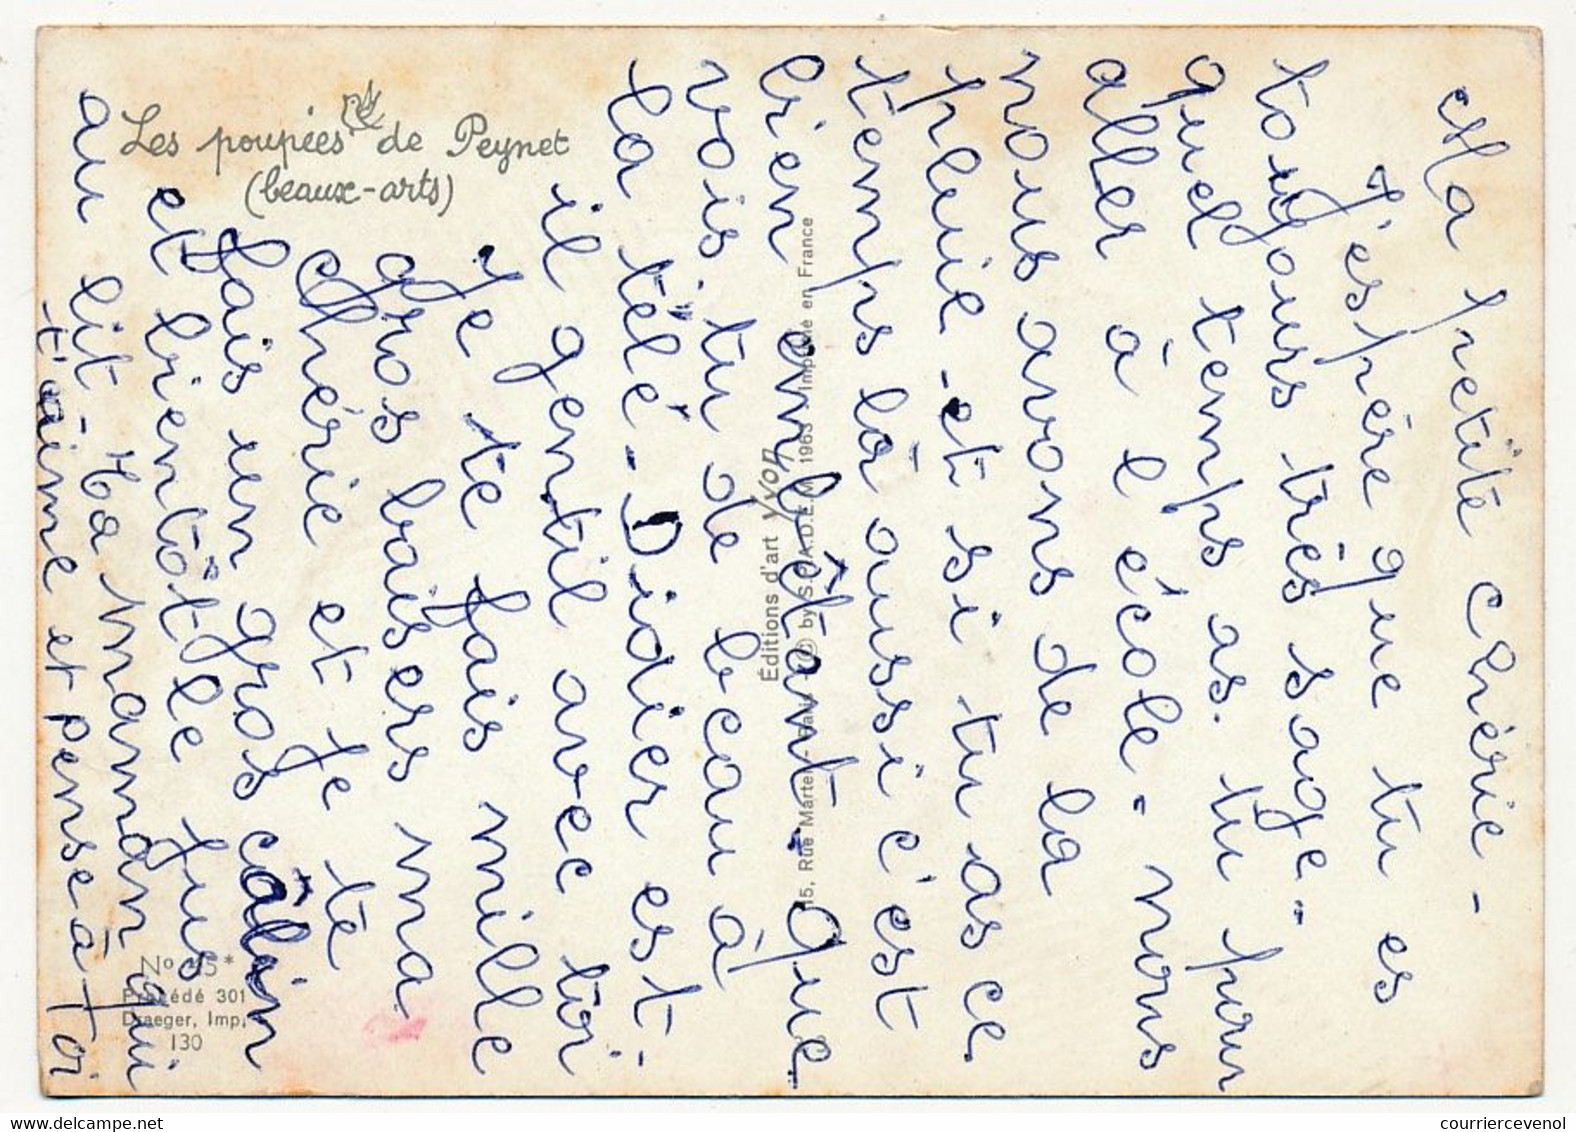 Ma petite chérie -
J'espère que tu es
toujours très sage -
quel temps as-tu pour
aller à l'école - nous
nous avons de la
pluie - et si tu as ce
temps là aussi c'est
bien embêtant - que
vois-tu de beau à
la télé - Didier est-
il gentil avec toi -
Je te fais mille
gros baisers ma
chérie et je te
fais un gros câlin
et bientôt le jus
au lit - ta maman qui
t'aime et pense à toi
Les poupées de Peynet
(beaux-arts)
Éditions d'art Yvon
15, Rue Martel - Paris © by S.P.A.D.E.M. 1963 - Imprimé en France
Procédé 301
Draeger, Imp.
130
courriercevenol